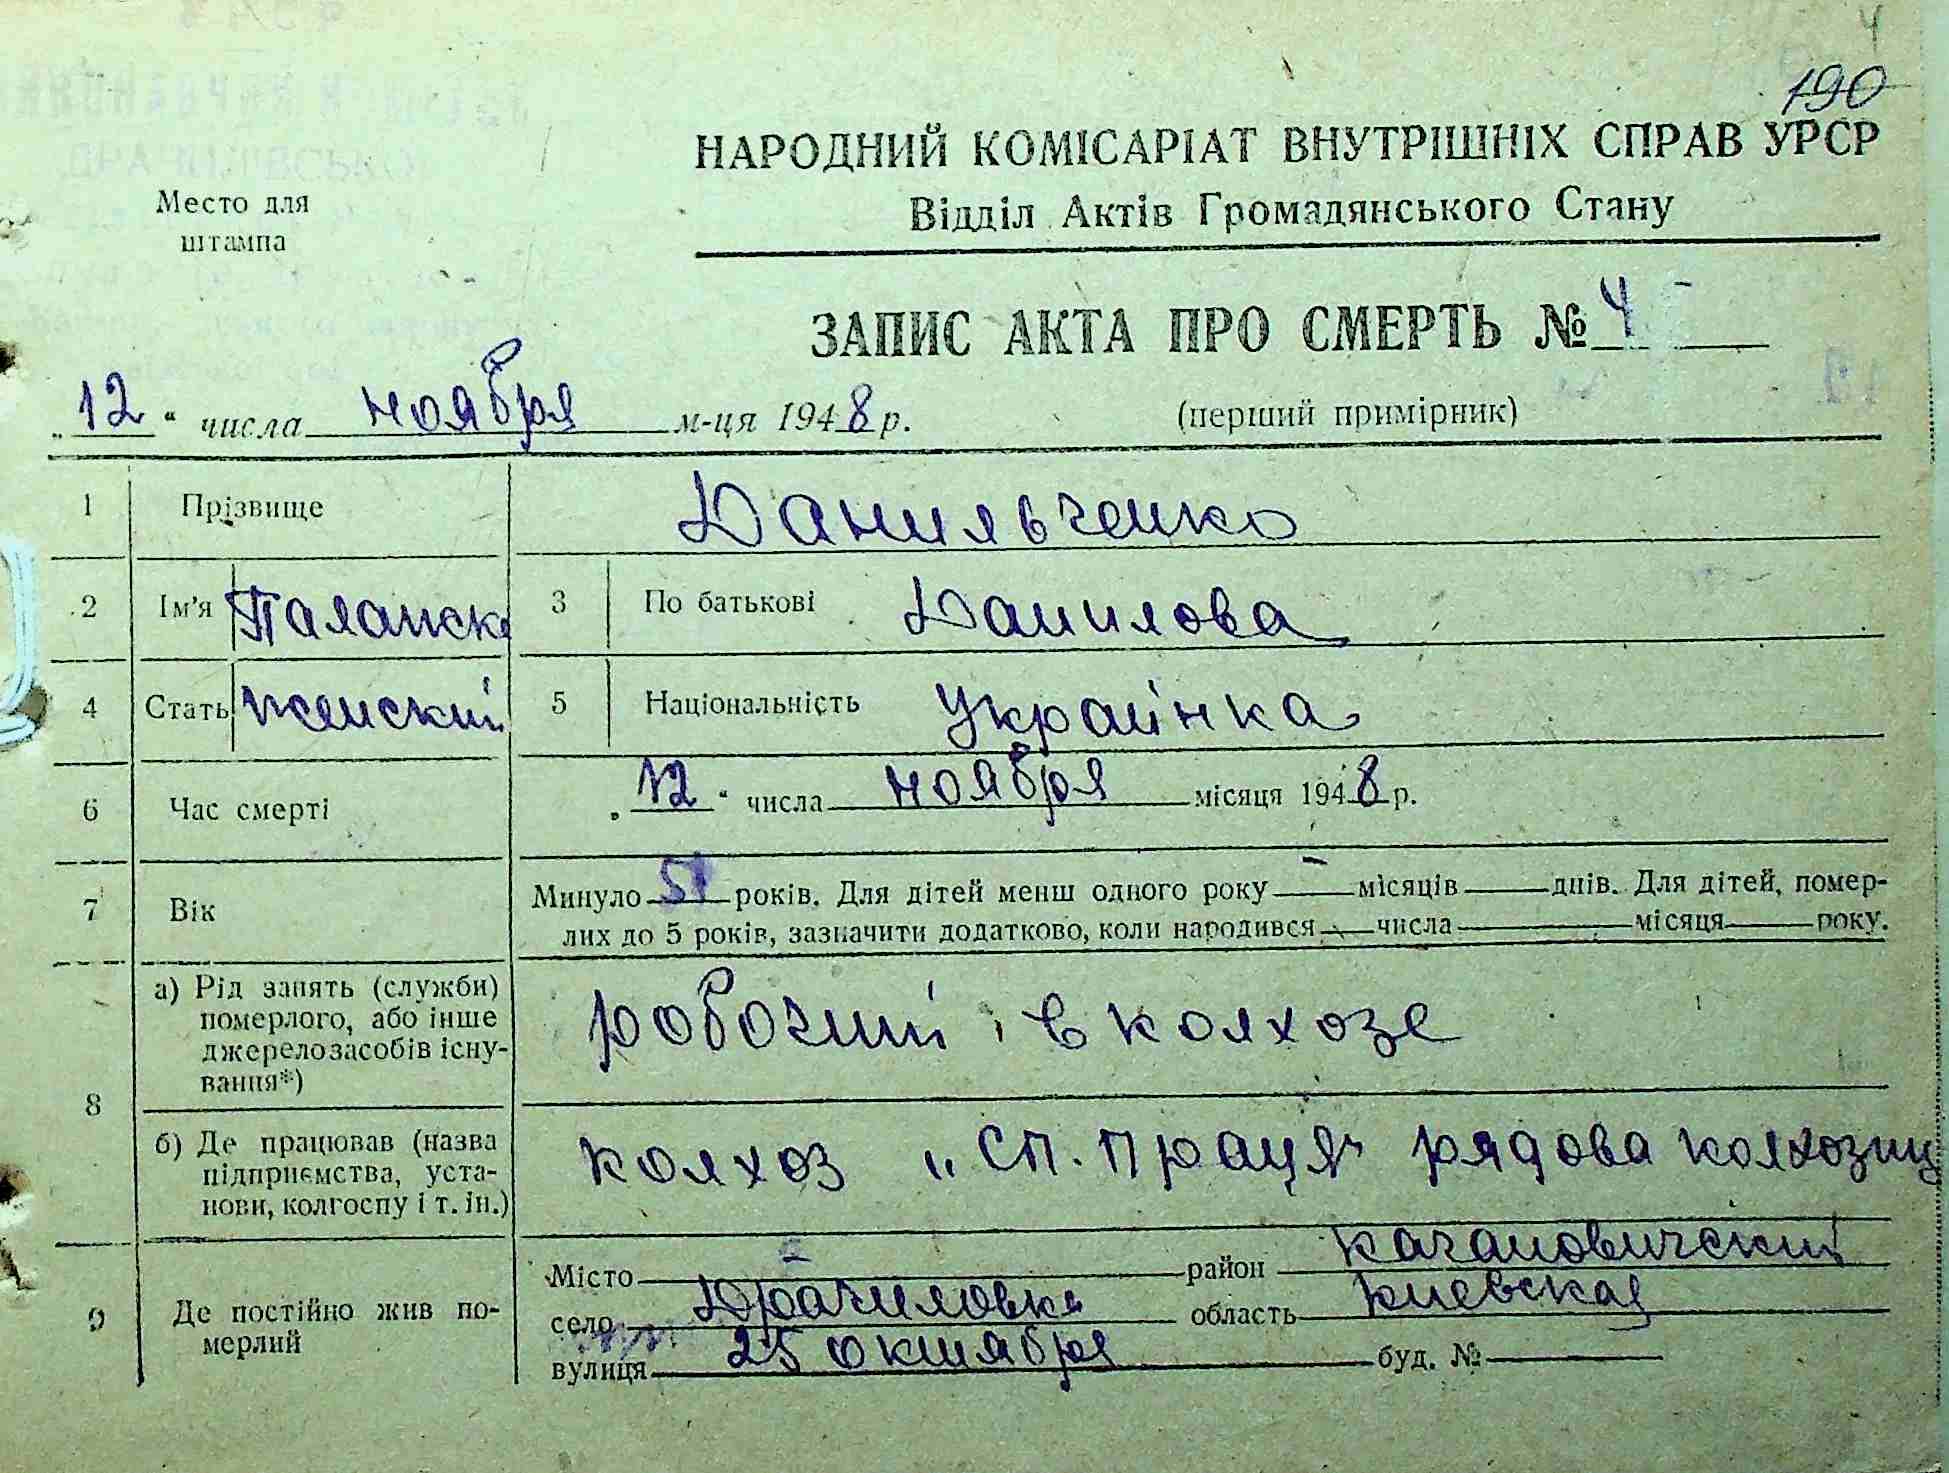 4
190
НАРОДНИЙ КОМІСАРІАТ ВНУТРІШНІХ СПРАВ УРСР
Відділ Актів Громадянського Стану
Место для
штампа
ЗАПИС АКТА ПРО СМЕРТЬ № 4
„12“ числа ноября м-ця 1948 р. (перший примірник)
1 Прізвище Данильченко
2 Ім'я 3 По батькові Данилова
4 Стать женский 5 Національність Українка
6 Час смерті „12“ числа ноября місяця 1948 р.
7 Вік Минуло 51 років. Для дітей менш одного року — місяців — днів. Для дітей, помер-
лих до 5 років, зазначити додатково, коли народився — числа — місяця — року.
8 а) Рід занять (служби)
померлого, або інше
джерело засобів існу-
вання*)
робочий в колхозе
б) Де працював (назва
підприємства, уста-
нови, колгоспу і т. ін.)
колхоз „Сп. Праця“ рядова колхозниц
9 Де постійно жив по-
мерлий
Місто — район Кагановичский
село Драчиловка область Киевская
вулиця 25 октября буд. № —